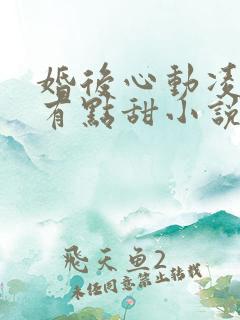 婚後心動凌
有點甜小說
飛天鱼2
未经同意禁止转载